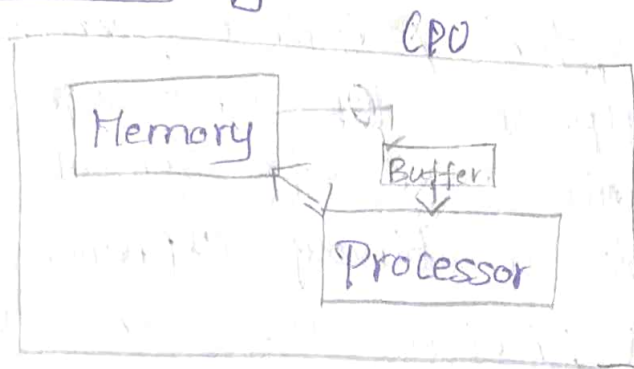 CPU
Memory
Buffer
Processor